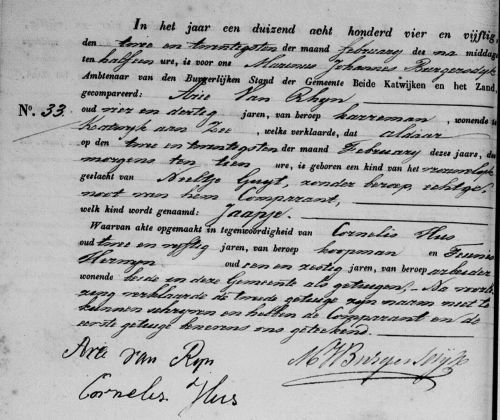 In het jaar een duizend acht honderd vier en vijftig,
den twee en twintigsten der maand february des na middags
ten half een ure, is voor ons Marinus Johannes Burgersdijk
Ambtenaar van den Burgerlijken Stand der Gemeente Beide Katwijken en het Zand,
gecompareerd: Arie Van Rhyn
No. 33. oud vier en dertig jaren, van beroep karreman, wonende te
Katwijk aan Zee, welke verklaarde, dat aldaar
op den twee en twintigsten der maand February dezes jaars, des
morgens ten tien ure, is geboren een kind van het vrouwelijk
geslacht van Neeltje Guyt, zonder beroep, echtge-
noot van hem Comparant,
welk kind wordt genaamd: Jaapje.
Waarvan akte opgemaakt in tegenwoordigheid van Cornelis Hus
oud twee en vyftig jaren, van beroep koopman en Teunis
oud een en zestig jaren, van beroep arbeider
wonende beide in deze Gemeente als getuigen. Na voorle-
zing verklaarde de tweede getuige zyn naam niet te
kunnen schryven en hebben de Comparant en de
eerste getuige benevens ons geteekend.
Arie van Ryn
MJBurgersdijk
Cornelis Hus